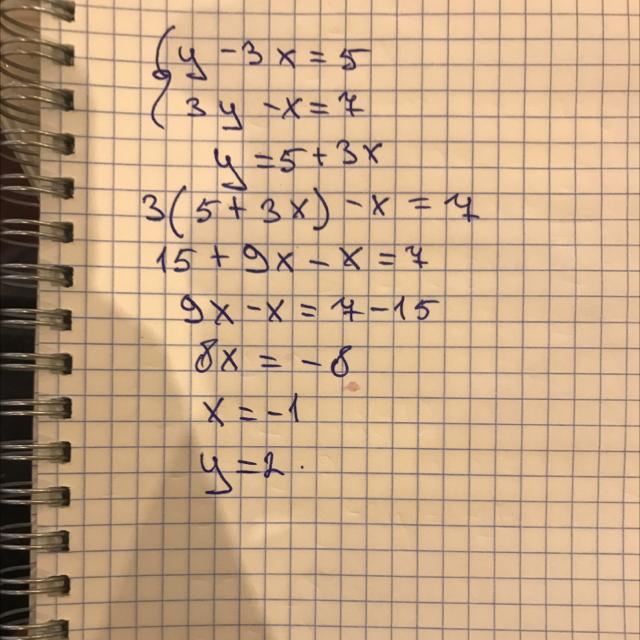 { y - 3x = 5
3y - x = 7
y = 5 + 3x
3(5 + 3x) - x = 7
15 + 9x - x = 7
9x - x = 7 - 15
8x = -8
x = -1
y = 2.